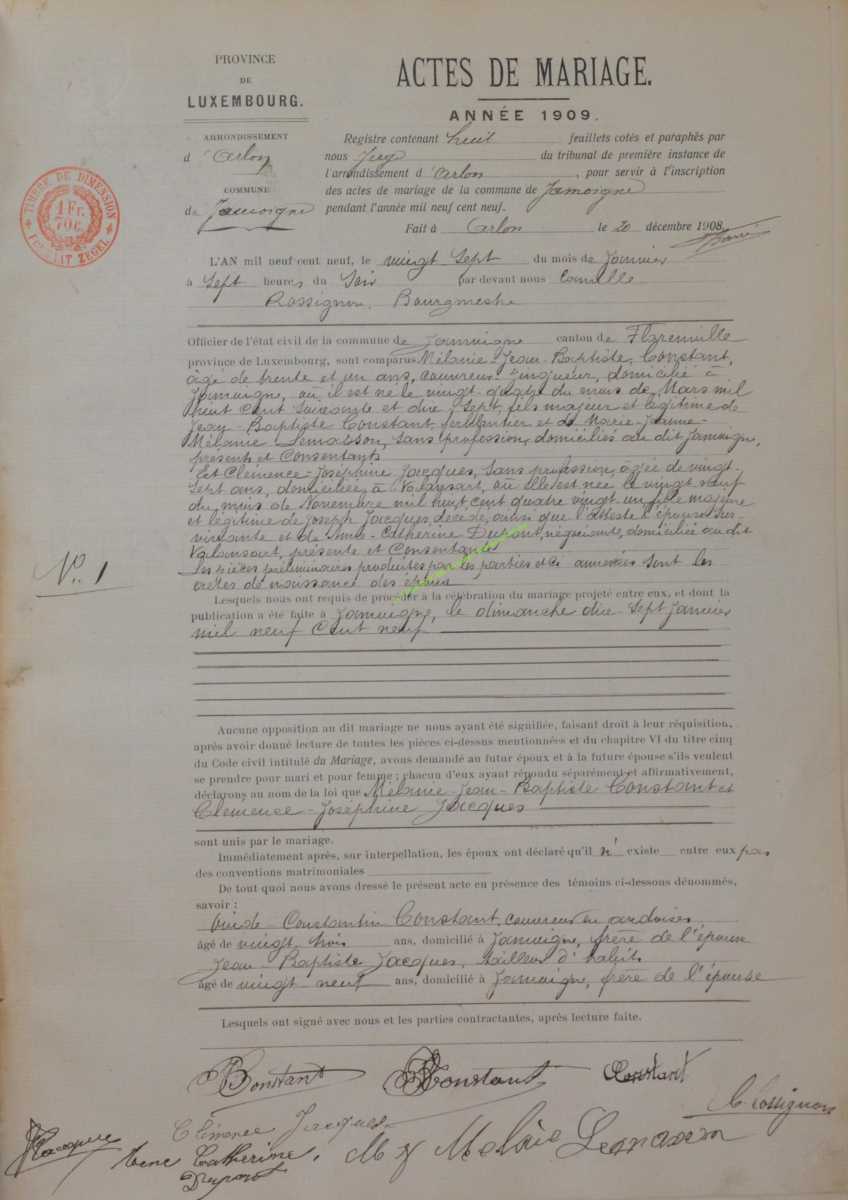 PROVINCE
DE
LUXEMBOURG.
ARRONDISSEMENT
d'Arlon
COMMUNE
de Jamoigne
TIMBRE DE DIMENSION
1 Fr.
70c.
FORMAAT ZEGEL
ACTES DE MARIAGE.
ANNÉE 1909.
Registre contenant huit feuillets cotés et paraphés par
nous Juge du tribunal de première instance de
l'arrondissement d'Arlon, pour servir à l'inscription
des actes de mariage de la commune de Jamoigne
pendant l'année mil neuf cent neuf.
Fait à Arlon le 20 décembre 1908.
L'AN mil neuf cent neuf, le vingt sept du mois de Janvier
à sept heures du Soir par devant nous Camille
Rossignon, Bourgmestre
Officier de l'état civil de la commune de Jamoigne canton de Florenville
province de Luxembourg, sont comparus Mélanie-Jean-Baptiste Constant,
âgé de trente et un ans, couvreur-zingueur, domicilié à
Jamoigne, où il est né le vingt-quatre du mois de Mars mil
huit cent soixante et dix-sept, fils majeur et légitime de
Jean-Baptiste Constant, ferblantier et de Marie-Jeanne-
Mélanie Lemasson, sans profession, domiciliés au dit Jamoigne,
présents et Consentants
Et Clémence-Joséphine Jacques, sans profession, âgée de vingt-
sept ans, domiciliée à Valansart, où Elle est née le vingt neuf
du mois de Novembre mil huit cent quatre vingt un fille majeure
et légitime de Joseph Jacques, décédé, ainsi que l'atteste l'épouse sur-
vivante et de Anne-Catherine Dupont, négociante, domiciliée au dit
Valansart, présente et Consentante
Les pièces préliminaires produites par les parties et ci annexées sont les
actes de naissance des époux
Nº 1
Lesquels nous ont requis de procéder à la célébration du mariage projeté entre eux, et dont la
publication a été faite à Jamoigne, le dimanche dix-sept Janvier
mil neuf cent neuf
Aucune opposition au dit mariage ne nous ayant été signifiée, faisant droit à leur réquisition,
après avoir donné lecture de toutes les pièces ci-dessus mentionnées et du chapitre VI du titre cinq
du Code civil intitulé du Mariage, avons demandé au futur époux et à la future épouse s'ils veulent
se prendre pour mari et pour femme ; chacun d'eux ayant répondu séparément et affirmativement,
déclarons au nom de la loi que Mélanie-Jean-Baptiste Constant et
Clémence-Joséphine Jacques
sont unis par le mariage.
Immédiatement après, sur interpellation, les époux ont déclaré qu'il n' existe entre eux pas
des conventions matrimoniales
De tout quoi nous avons dressé le présent acte en présence des témoins ci-dessous dénommés,
savoir :
Ovide-Constantin Constant, couvreur en ardoises
âgé de vingt trois ans, domicilié à Jamoigne, frère de l'époux
Jean-Baptiste Jacques, tailleur d'habits
âgé de vingt neuf ans, domicilié à Jamoigne, frère de l'épouse
Lesquels ont signé avec nous et les parties contractantes, après lecture faite.
Constant Constant Constant
C. Rossignon
Clémence Jacques
Jacques
Catherine
Dupont
Lemasson